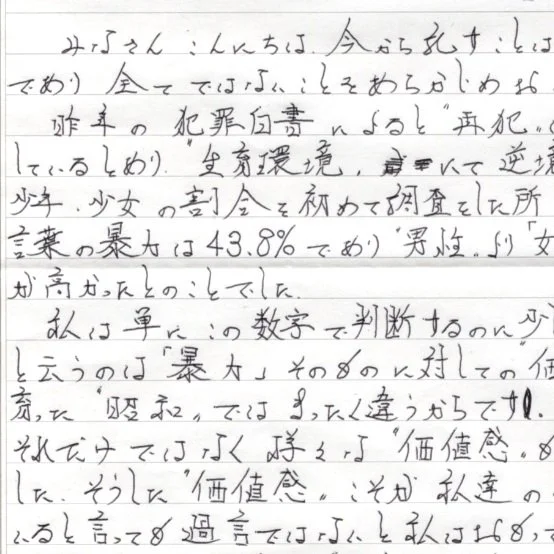 みなさん こんにちは. 今から記すことは
であり 全て ではないことをあらかじめお
昨年の 犯罪白書 によると "再犯"
しているとあり. "生育環境, にて 逆境
少年・少女の割合を初めて調査をした所
言葉の暴力は43.8%であり "男性" より "女
が高かったとのことでした.
私は単に この数字で判断するのに少
と云うのは「暴力」そのものに対しての "価
育った "昭和" ではまったく違うからです.
それだけではなく 様々な "価値感" も
した. そうした "価値感" こそが 私達の
いると言っても過言ではないと私はおもって